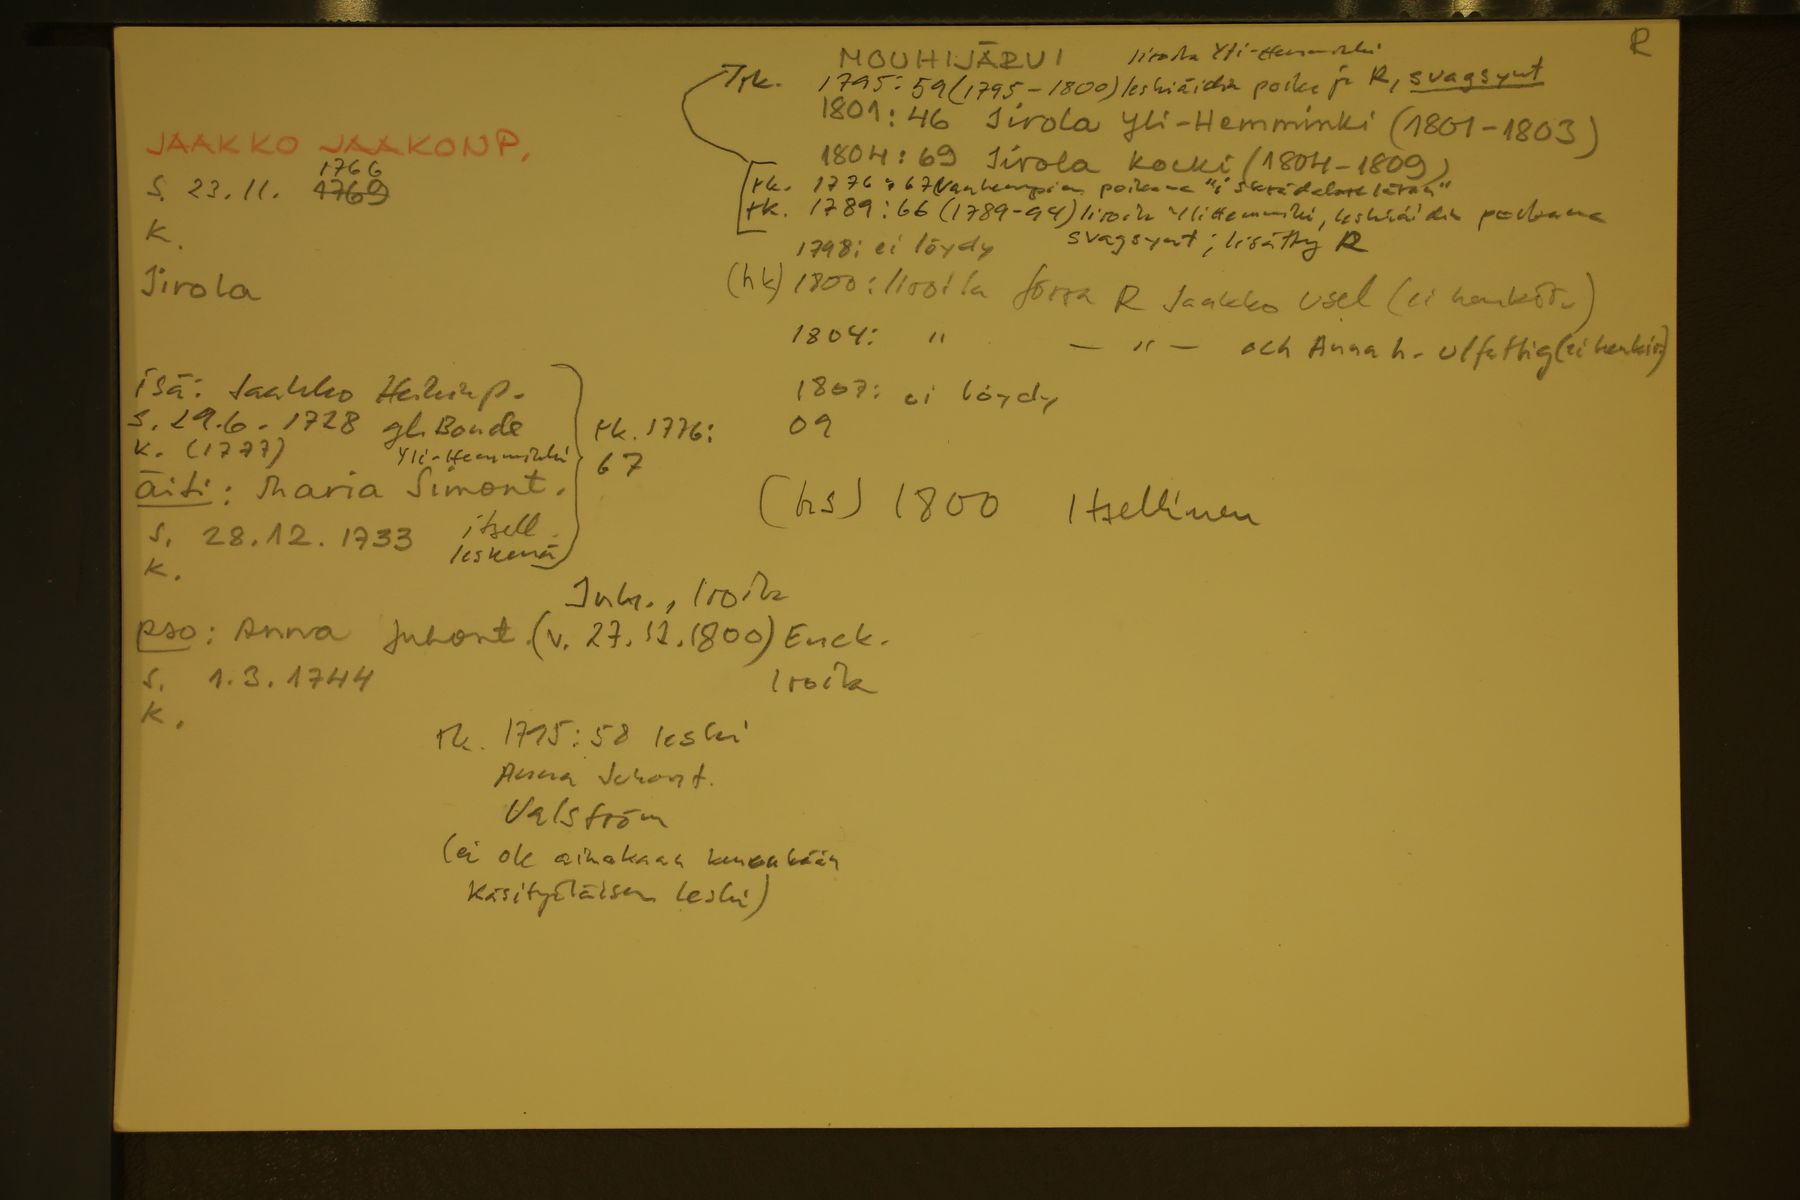 R
MOUHIJÄRVI Iirola Yli-Hemminki
rk. 1795: 59 (1795-1800) leskiäidin poika ja R, svagsynt
1801: 46 Iirola Yli-Hemminki (1801-1803)
1804: 69 Iirola Kocki (1804-1809)
rk. 1776: 67 vanhempien poikana "i skrädelare läran"
rk. 1789: 66 (1789-94) Iiroila Ylihemminki, leskiäidin poikana
svagsynt; lisätty R
1798: ei löydy
(hk) 1800: Iiroila förra R Jaakko usel (ei henkiöä)
1804: " — " — och Anna h. utfattig (ei henkiöä)
1807: ei löydy
09
(hs) 1800 Itsellinen
JAAKKO JAAKONP.
1766
s. 23.11. 1769
k.
Iirola
isä: Jaakko Heikinp.
s. 29.6. 1728 gl. Bonde
k. (1777) Yli-Hemminki
äiti: Maria Simont.
s. 28.12. 1733 itsell.
leskenä
k.
rk. 1776:
67
Inh., Iroila
pso: Anna Juhont. (v. 27.12.1800) Enck.
s. 1.3.1744 Iroila
k.
rk. 1795: 58 leski
Anna Juhont.
Valström
(ei ole ainakaan kenenkään
käsityöläisen leski)